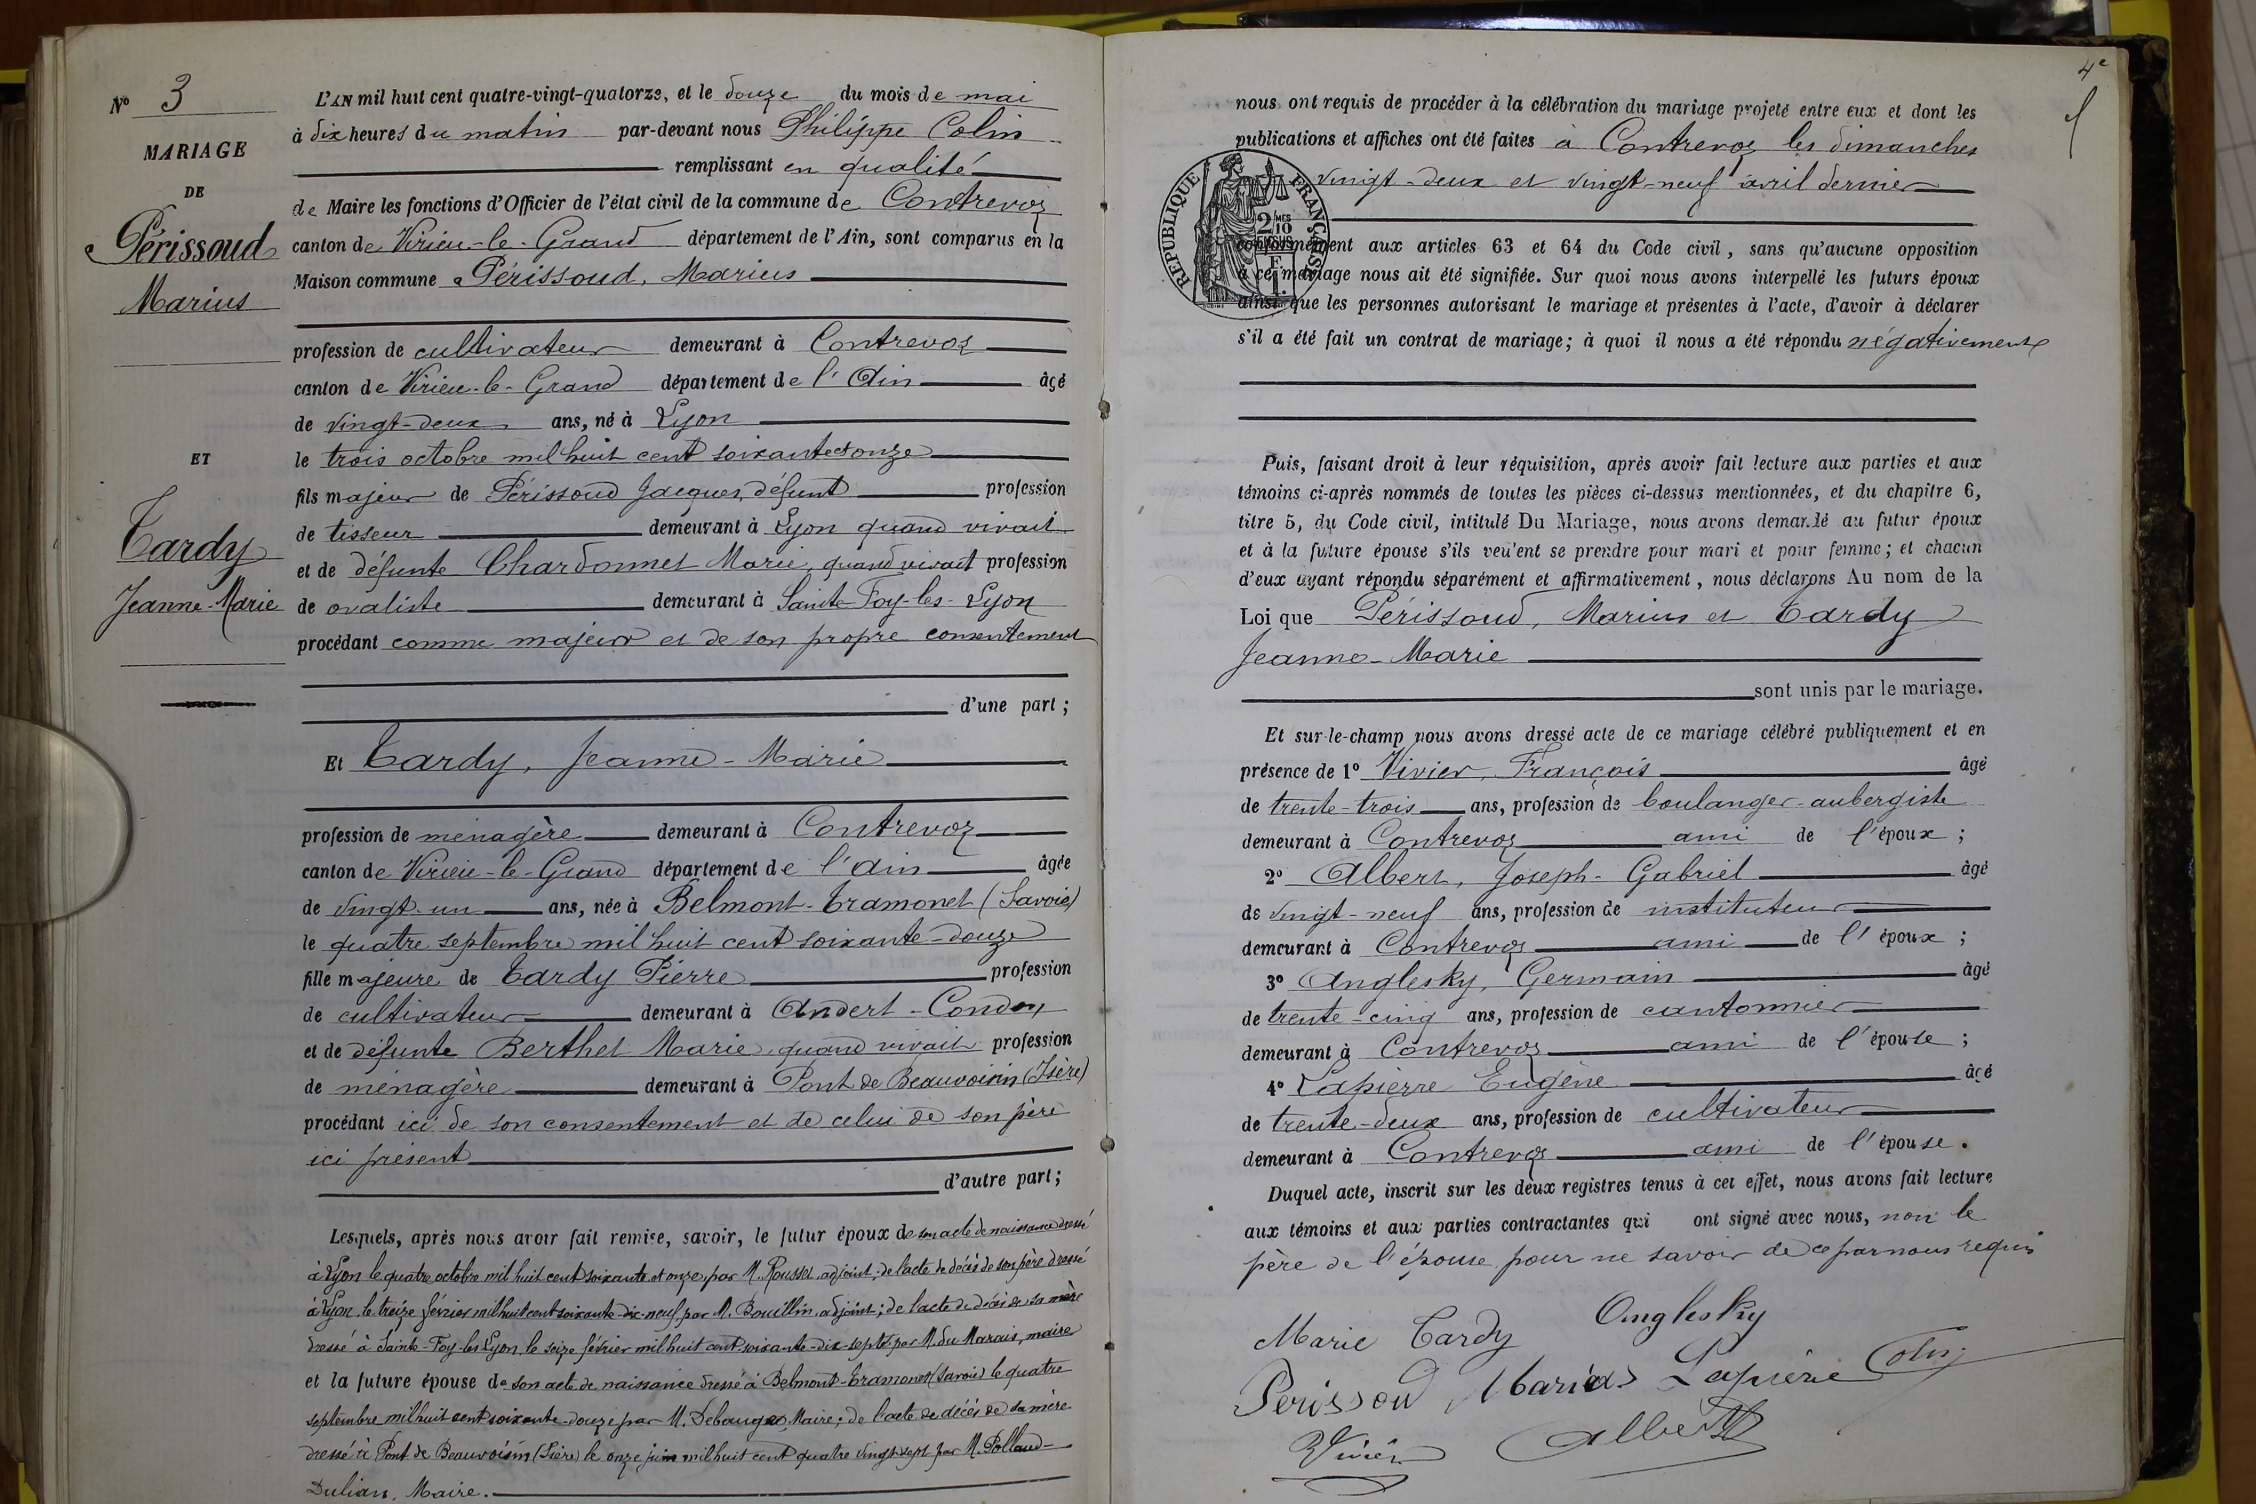 N° 3
MARIAGE
DE
Périssoud
Marius
ET
Tardy
Jeanne-Marie
L'AN mil huit cent quatre-vingt-quatorze, et le douze du mois de mai
à dix heures du matin par-devant nous Philippe Colin
remplissant en qualité
de Maire les fonctions d'Officier de l'état civil de la commune de Contrevoz
canton de Virieu-le-Grand département de l'Ain, sont comparus en la
Maison commune Périssoud, Marius
profession de cultivateur demeurant à Contrevoz
canton de Virieu-le-Grand département de l'Ain âgé
de vingt-deux ans, né à Lyon
le trois octobre mil huit cent soixante et onze
fils majeur de Périssoud Jacques, défunt profession
de tisseur demeurant à Lyon quand vivait
et de défunte Chardonnet Marie, quand vivait profession
de ovaliste demeurant à Sainte-Foy-les-Lyon
procédant comme majeur et de son propre consentement
d'une part ;
Et Tardy, Jeanne-Marie
profession de ménagère demeurant à Contrevoz
canton de Virieu-le-Grand département de l'Ain âgée
de vingt-un ans, née à Belmont-Tramonet (Savoie)
le quatre septembre mil huit cent soixante-douze
fille majeure de Tardy Pierre profession
de cultivateur demeurant à Andert-Condon
et de défunte Berthet Marie, quand vivait profession
de ménagère demeurant à Pont de Beauvoisin (Isère)
procédant ici de son consentement et de celui de son père
ici présent
d'autre part ;
Lesquels, après nous avoir fait remise, savoir, le futur époux de son acte de naissance dressé
à Lyon le quatre octobre mil huit cent soixante et onze par M. Rousset, adjoint ; de l'acte de décès de son père dressé
à Lyon le treize février mil huit cent soixante-dix-neuf par M. Bouillin, adjoint ; de l'acte de décès de sa mère
dressé à Sainte-Foy-les-Lyon, le seize février mil huit cent soixante-dix-sept par M. du Marais, maire
et la future épouse de son acte de naissance dressé à Belmont-Tramonet (Savoie) le quatre
septembre mil huit cent soixante-douze par M. Debauge, Maire ; de l'acte de décès de sa mère
dressé à Pont de Beauvoisin (Isère) le onze juin mil huit cent quatre vingt sept par M. Pollaud-
Dulian, Maire.
4e
nous ont requis de procéder à la célébration du mariage projeté entre eux et dont les
publications et affiches ont été faites à Contrevoz les dimanches
vingt-deux et vingt-neuf avril dernier
RÉPUBLIQUE FRANÇAISE
2 MES 10 EN SUS
conformément aux articles 63 et 64 du Code civil, sans qu'aucune opposition
à ce mariage nous ait été signifiée. Sur quoi nous avons interpellé les futurs époux
ainsi que les personnes autorisant le mariage et présentes à l'acte, d'avoir à déclarer
s'il a été fait un contrat de mariage ; à quoi il nous a été répondu négativement
Puis, faisant droit à leur réquisition, après avoir fait lecture aux parties et aux
témoins ci-après nommés de toutes les pièces ci-dessus mentionnées, et du chapitre 6,
titre 5, du Code civil, intitulé Du Mariage, nous avons demandé au futur époux
et à la future épouse s'ils veulent se prendre pour mari et pour femme ; et chacun
d'eux ayant répondu séparément et affirmativement, nous déclarons Au nom de la
Loi que Périssoud, Marius et Tardy
Jeanne-Marie
sont unis par le mariage.
Et sur-le-champ nous avons dressé acte de ce mariage célébré publiquement et en
présence de 1° Vivier, François âgé
de trente-trois ans, profession de boulanger-aubergiste
demeurant à Contrevoz ami de l'époux ;
2° Albert, Joseph-Gabriel âgé
de vingt-neuf ans, profession de instituteur
demeurant à Contrevoz ami de l'époux ;
3° Anglesky, Germain âgé
de trente-cinq ans, profession de cantonnier
demeurant à Contrevoz ami de l'épouse ;
4° Lapierre Eugène âgé
de trente-deux ans, profession de cultivateur
demeurant à Contrevoz ami de l'épouse.
Duquel acte, inscrit sur les deux registres tenus à cet effet, nous avons fait lecture
aux témoins et aux parties contractantes qui ont signé avec nous, non le
père de l'épouse pour ne savoir de ce par nous requis
Marie Tardy Anglesky
Perissoud Marius Lapierre Colin
Vivier Albert